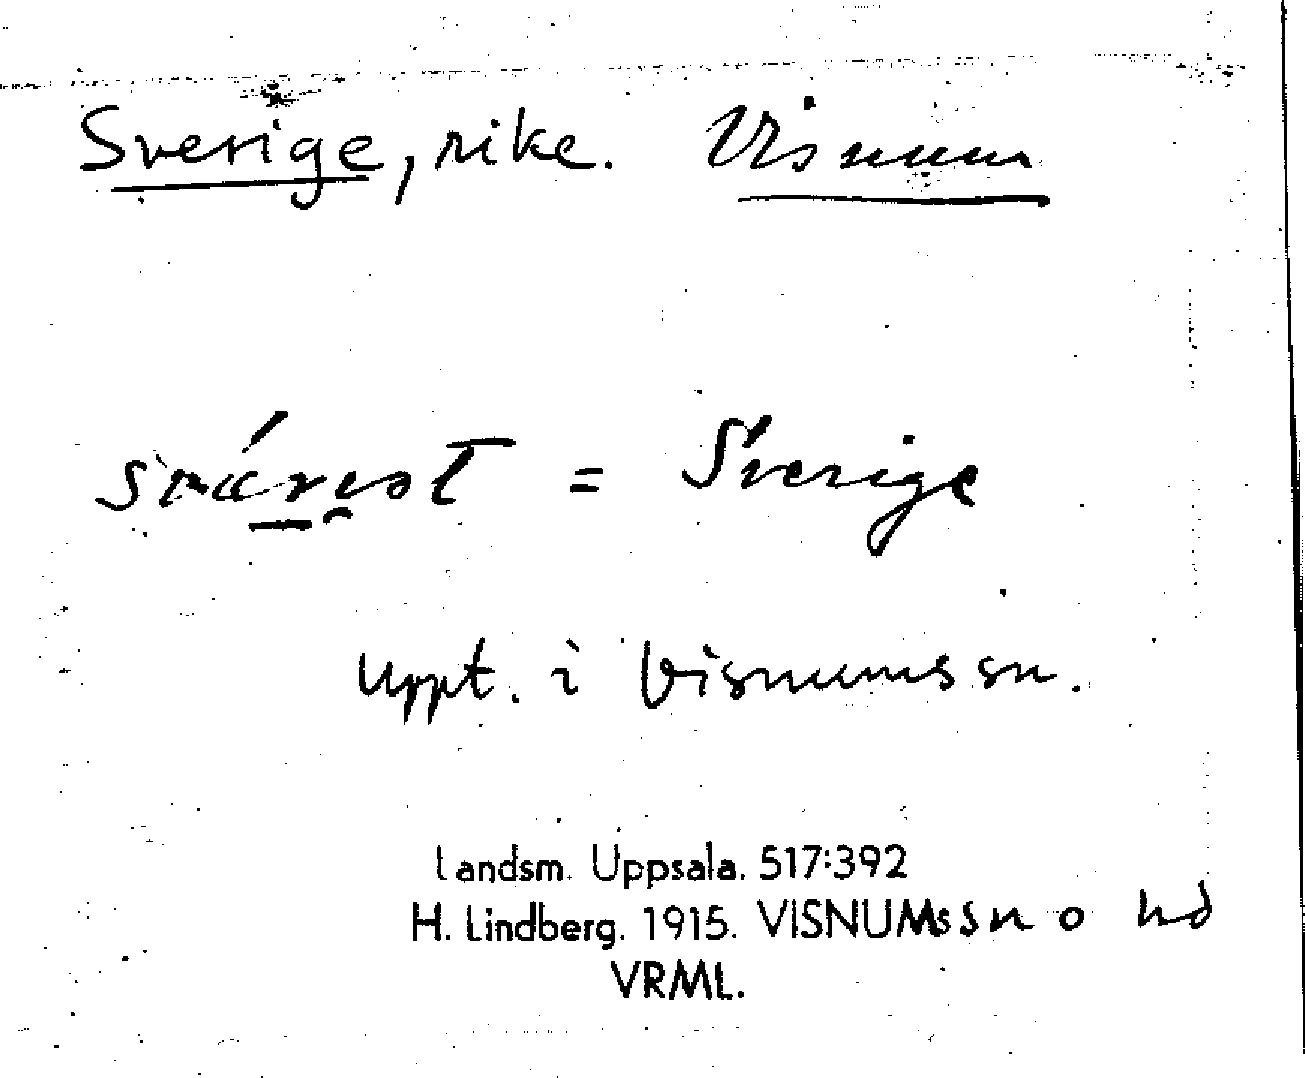 Sverige, rike. Visnum
= Sverige
Uppt. i Visnums sn.
Landsm. Uppsala. 517:392
H. Lindberg. 1915. VISNUMs sn o hd
VRML.